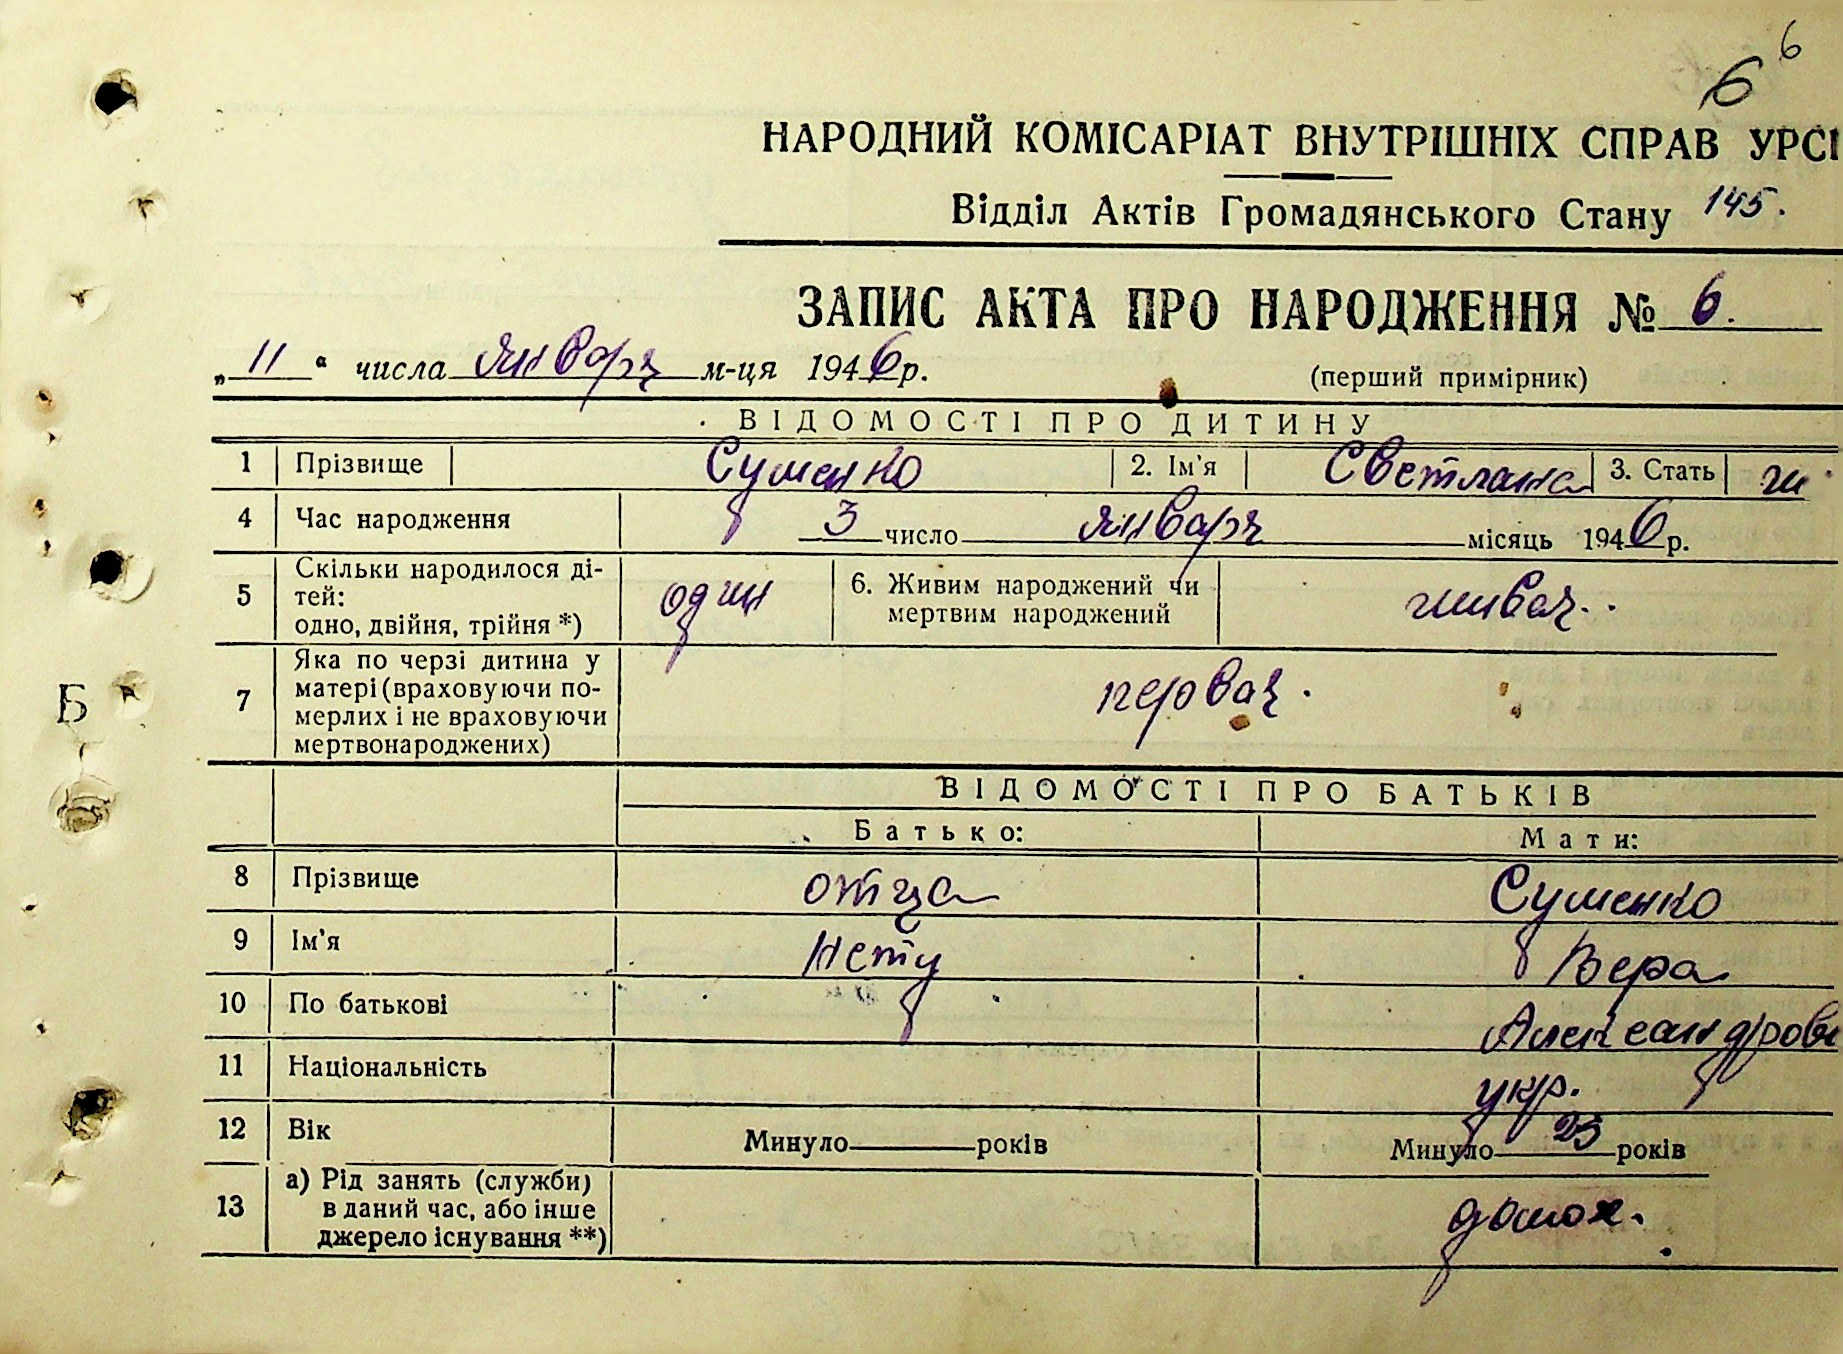 6
6
НАРОДНИЙ КОМІСАРІАТ ВНУТРІШНІХ СПРАВ УРСР
Відділ Актів Громадянського Стану 145.
ЗАПИС АКТА ПРО НАРОДЖЕННЯ № 6.
„11“ числа января м-ця 1946 р.
(перший примірник)
ВІДОМОСТІ ПРО ДИТИНУ
1 Прізвище Суменко 2. Ім'я Светлана 3. Стать ж
4 Час народження 3 число января місяць 1946 р.
5 Скільки народилося ді-
тей:
одно, двійня, трійня *)
один
6. Живим народжений чи
мертвим народжений
живая.
7 Яка по черзі дитина у
матері (враховуючи по-
мерлих і не враховуючи
мертвонароджених)
первая.
Б
ВІДОМОСТІ ПРО БАТЬКІВ
Батько: Мати:
8 Прізвище отца Суменко
9 Ім'я нету Вера
10 По батькові Александровн
11 Національність укр.
12 Вік Минуло років Минуло 23 років
13 а) Рід занять (служби)
в даний час, або інше
джерело існування **)
домох.